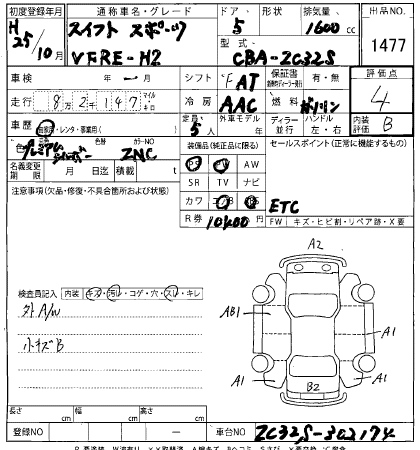 初度登録年月 通称車名・グレード ドア 形状 排気量 出品NO.
H 25/10月 スイフト スポーツ 5 1600 cc
VFRE-H2 型式 CBA-ZC32S 1477
車検 ー月 シフト FAT 保証書 有・無 評価点
走行 8万2147 マイル キロ 冷房 AAC 燃料 ガソリン 4
車歴 自家用・レンタ・事業用( ) 定員 5人 外車モデル 年 ディーラー 並行 ハンドル 左・右 内装評価 B
色 プレミアムシルバー 色替 カラーNO ZNC 装備品(純正品に限る) セールスポイント(正常に機能するもの)
PS PW AW
名義変更期限 月 日迄 積載 t SR TV ナビ
注意事項(欠品・修復・不具合箇所および状態) カワ
R券 10400 ETC
FW キズ・ヒビ割・リペア跡・X要
A2
検査員記入 内装 キズ・汚レ・コゲ・穴・スレ・キレ
外A/W AB1 A1
小キズB
A1 A1
B2
長さ cm 幅 cm 高さ cm
登録NO ー 車台NO ZC32S-302174